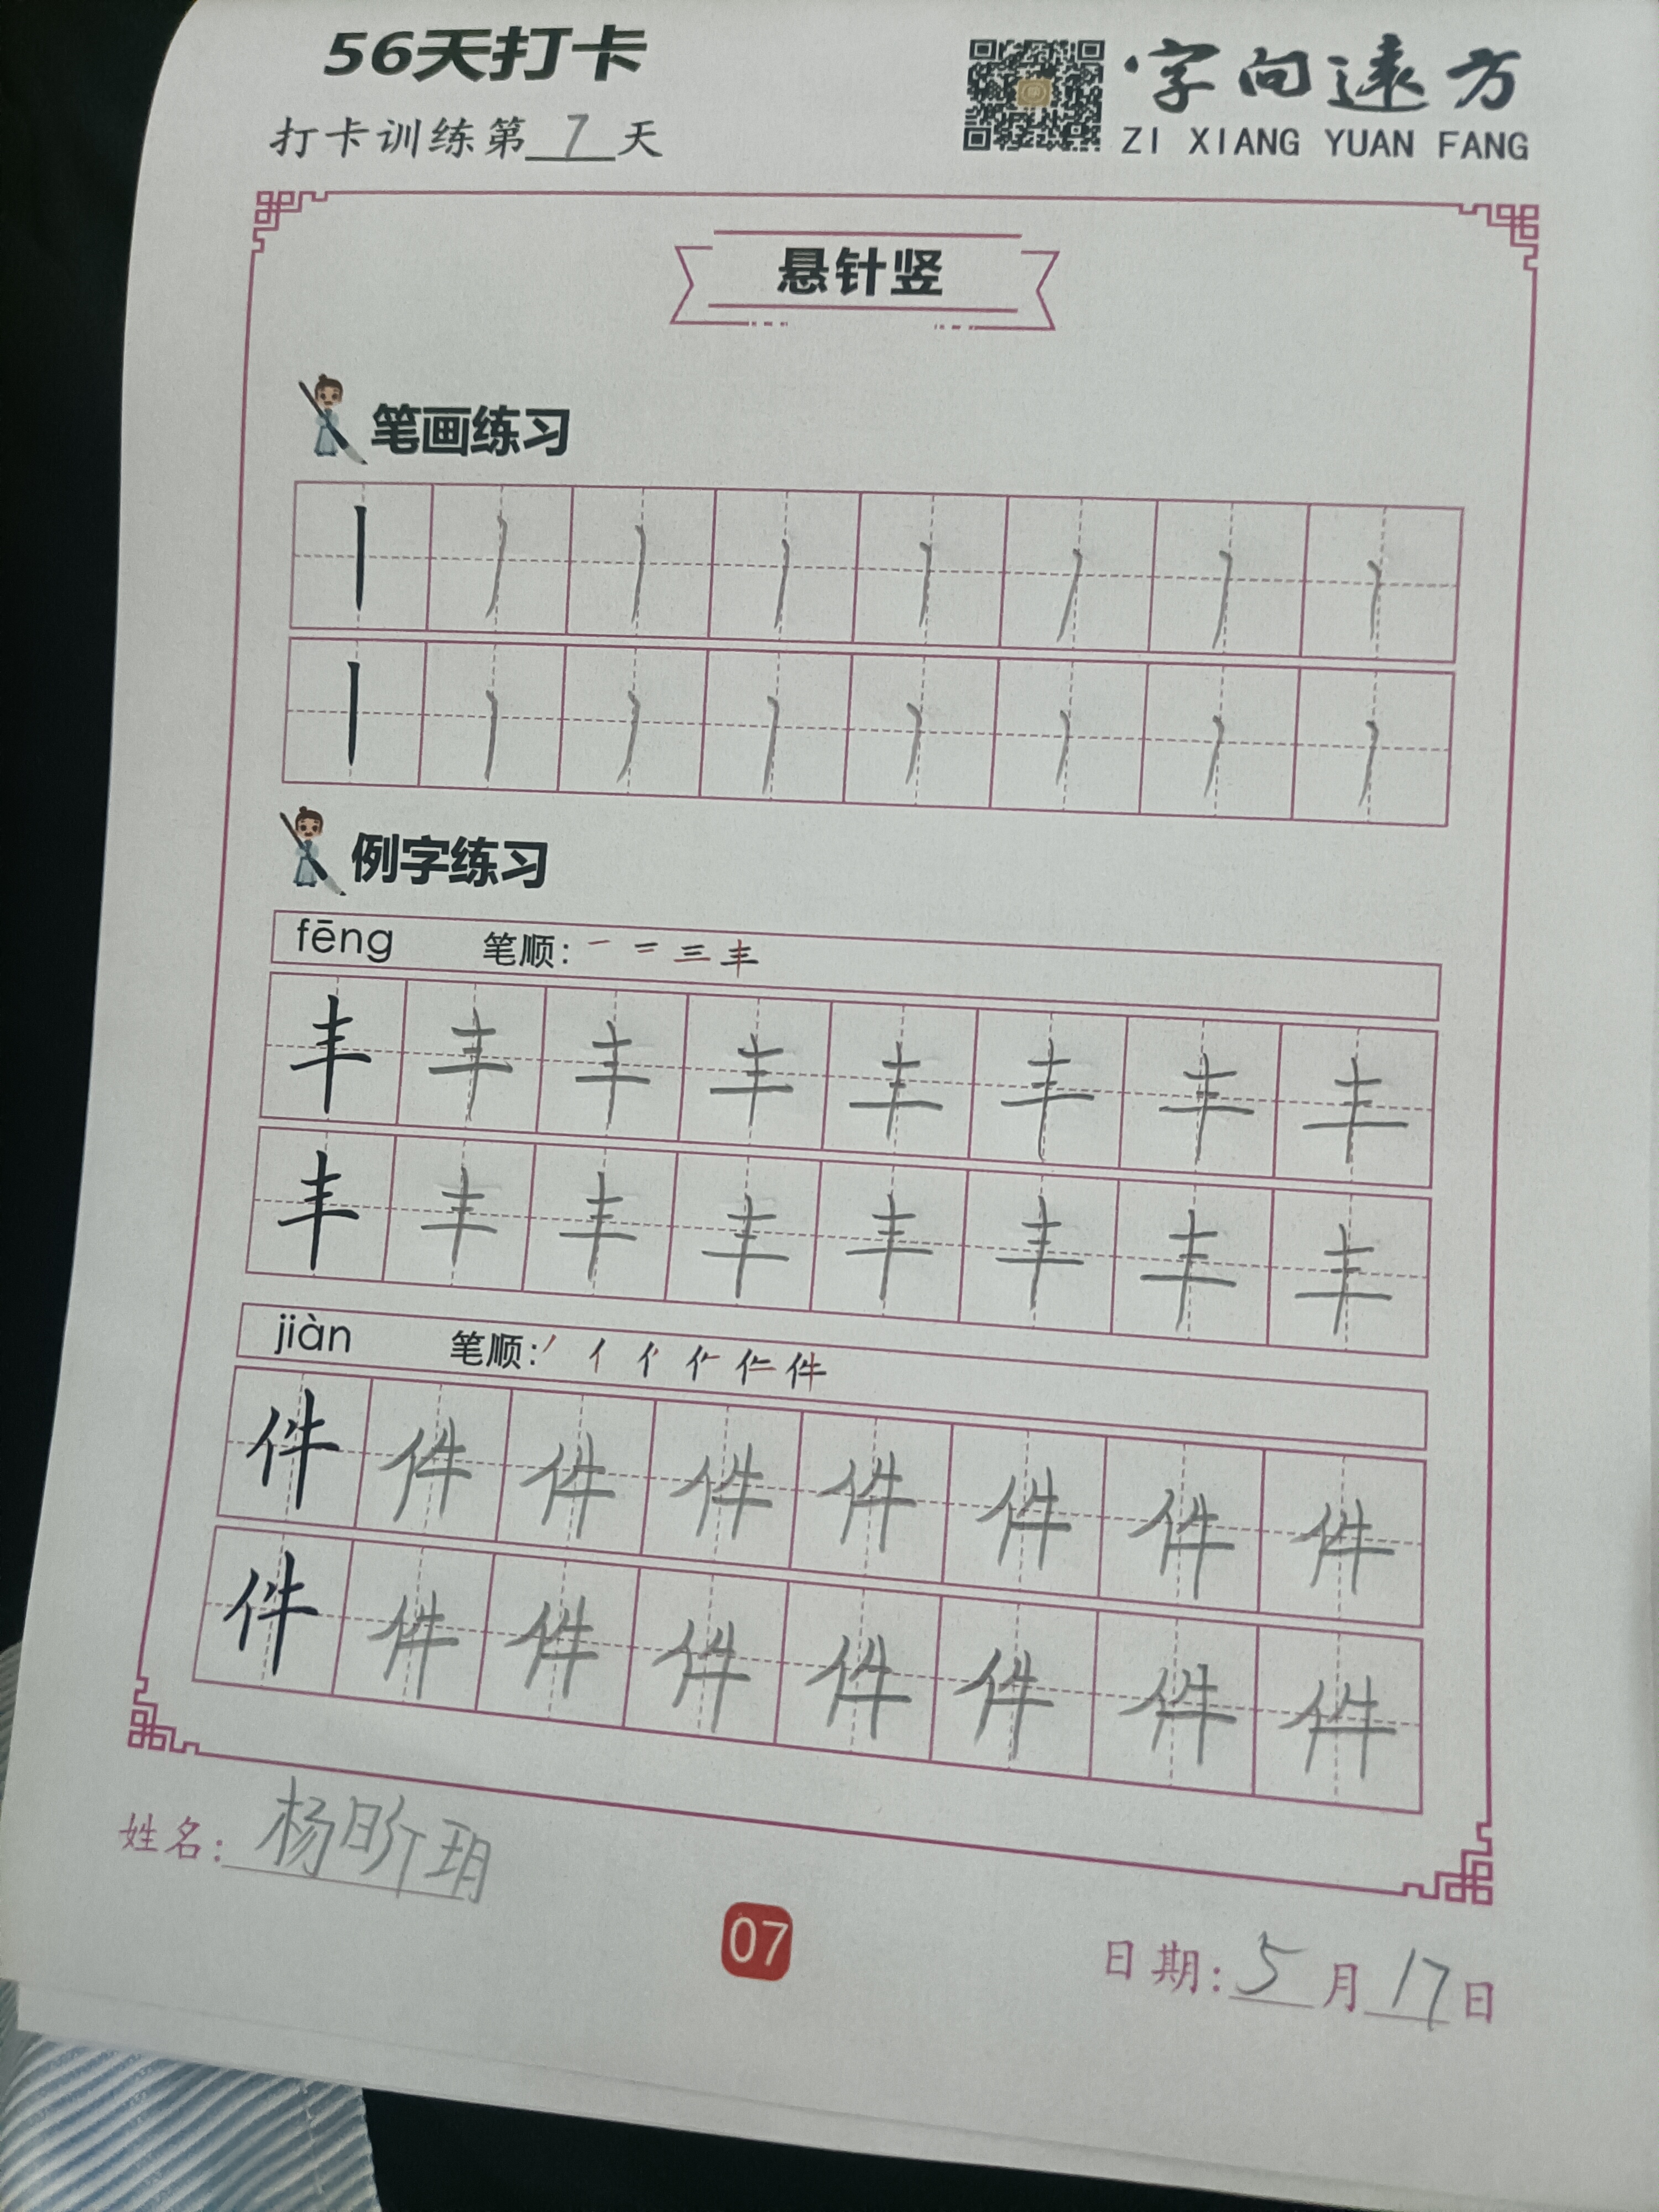 56天打卡
字向远方
打卡训练第7天
ZI XIANG YUAN FANG
悬针竖
笔画练习
例字练习
fēng 笔顺: 一 二 三 丰
丰 丰 丰 丰 丰 丰 丰 丰
丰 丰 丰 丰 丰 丰 丰 丰
jiàn 笔顺: 丿 亻 件
件 件 件 件 件 件 件 件
件 件 件 件 件 件 件 件
姓名: 杨昕玥
07
日期: 5月17日